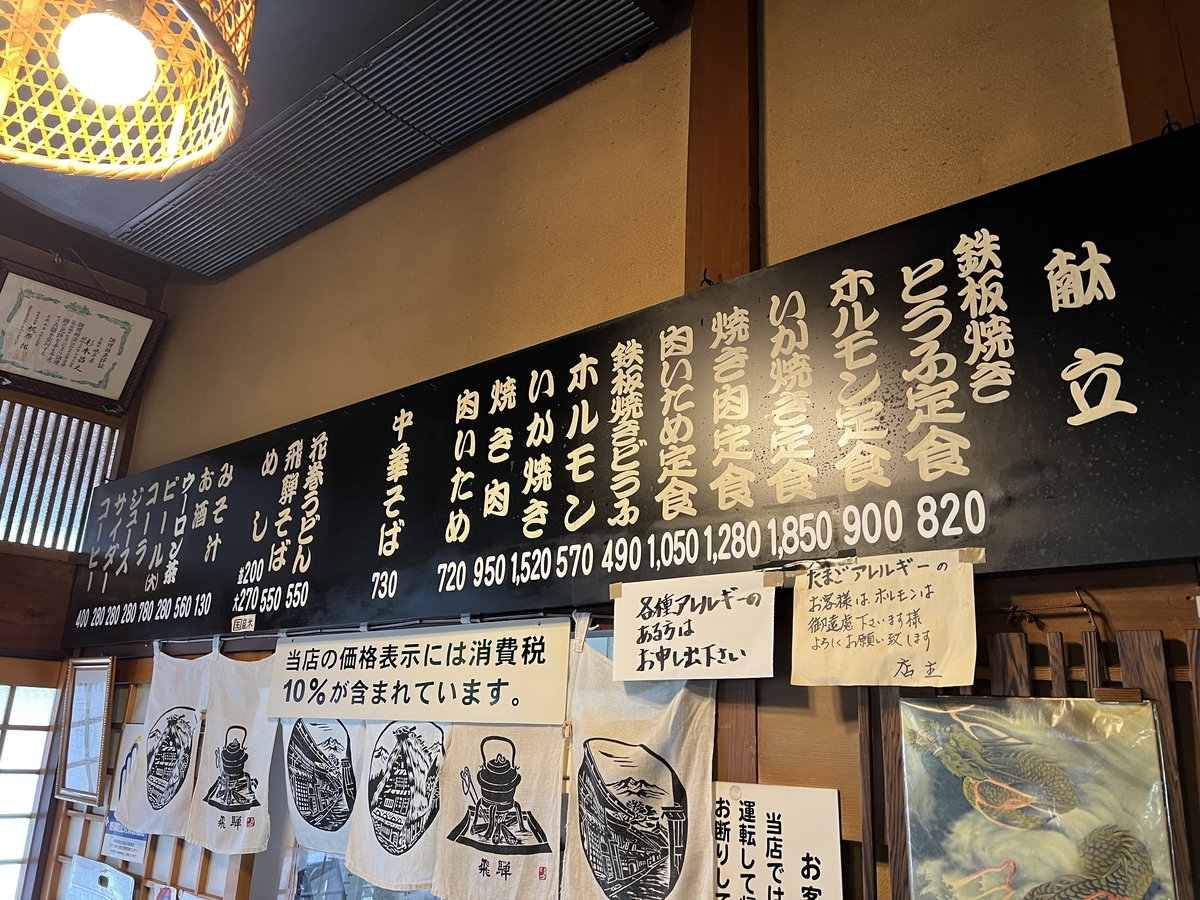 献立
鉄板焼き
とうふ定食 820
ホルモン定食 900
いか焼き定食 1,850
焼き肉定食 1,280
肉いため定食 1,050
鉄板焼きどうふ 490
ホルモン 570
いか焼き 1,520
焼き肉 950
肉いため 720
中華そば 730
花巻うどん 550
飛騨そば 550
めし 並200 大270
国産米
みそ汁 130
お酒 560
ウーロン茶 280
ビール(大) 780
コーラ 280
ジュース 280
サイダー 280
コーヒー 400
たまごアレルギーの
お客様はホルモンは
御遠慮下さいます様
よろしくお願い致します
店主
各種アレルギーの
ある方は
お申し出下さい
当店の価格表示には消費税
10%が含まれています。
お客
当店では
運転して
お断りして
飛騨
飛騨